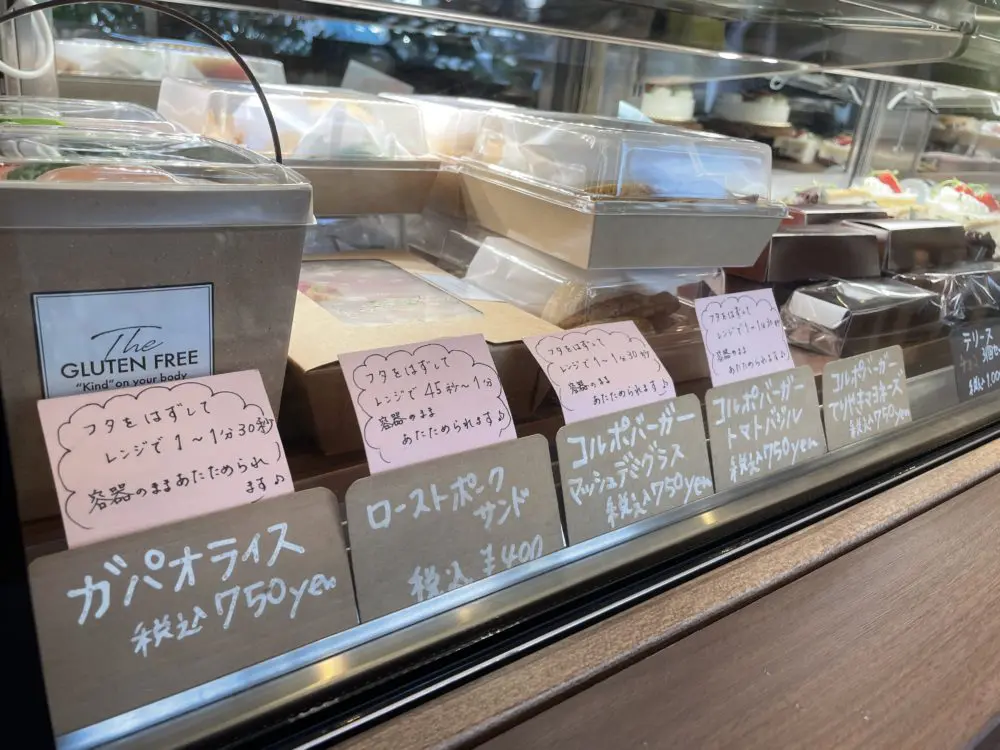 The
GLUTEN FREE
"Kind" on your body
フタをはずして
レンジで1～1分30秒
容器のままあたためられ
ます♪
ガパオライス
税込750yen
フタをはずして
レンジで45秒～1分
容器のまま
あたためられます♪
ローストポーク
サンド
税込¥400
フタをはずして
レンジで1～1分30秒
容器のまま
あたためられます♪
コルポバーガー
マッシュデミグラス
税込750yen
フタをはずして
レンジで1～1分30秒
容器のまま
あたためられます♪
コルポバーガー
トマトバジル
税込750yen
コルポバーガー
てりやきマヨネーズ
税込750yen
テリーヌ